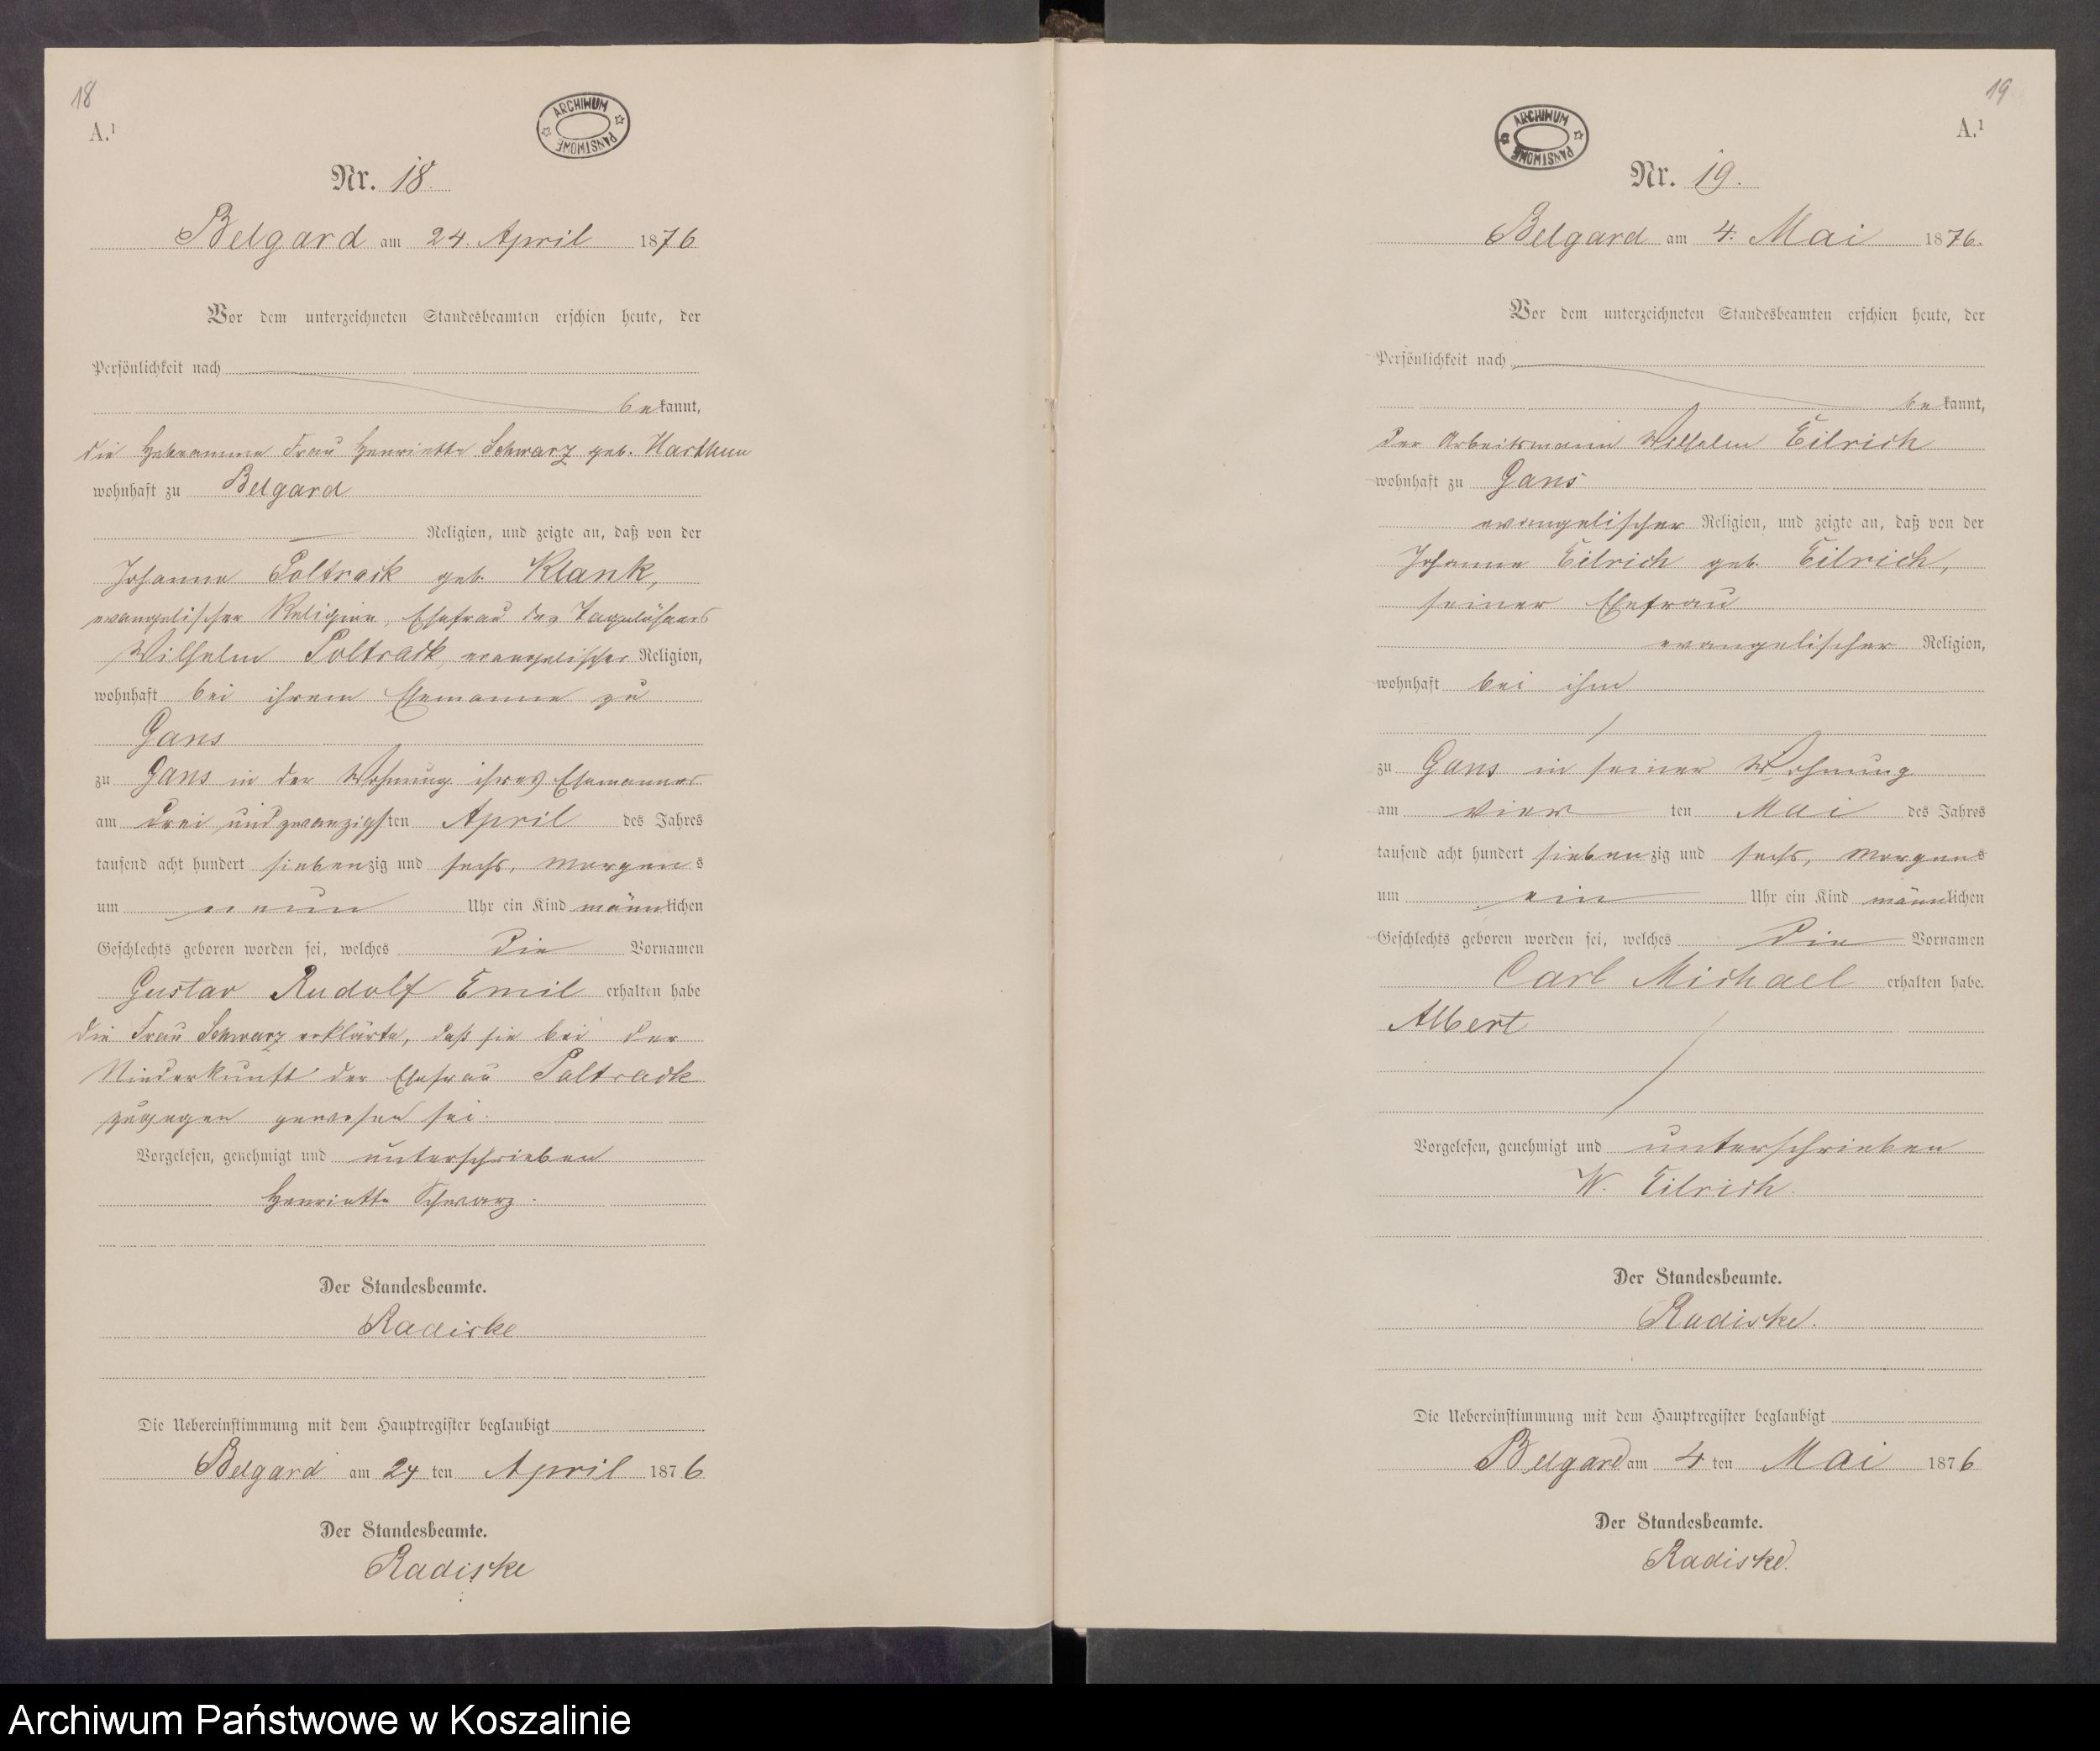 18
A.¹
ARCHIWUM PAŃSTWOWE
Nr. 18.
Belgard am 24. April 1876
Vor dem unterzeichneten Standesbeamten erschien heute, der
Persönlichkeit nach
bekannt,
die Hebeamme Frau Henriette Schwarz geb. Harthun
wohnhaft zu Belgard
Religion, und zeigte an, daß von der
Johanne Poltrack geb. Klank,
evangelischer Religion, Ehefrau des Tagelöhners
Wilhelm Poltrack, evangelischer Religion,
wohnhaft bei ihrem Ehemanne zu
Gans
zu Gans in der Wohnung ihres Ehemannes
am drei und zwanzigsten April des Jahres
tausend acht hundert siebenzig und sechs, Morgens
um neun Uhr ein Kind männlichen
Geschlechts geboren worden sei, welches die Vornamen
Gustav Rudolf Emil erhalten habe
die Frau Schwarz erklärte, daß sie bei der
Niederkunft der Ehefrau Poltrack
zugegen gewesen sei.
Vorgelesen, genehmigt und unterschrieben
Henriette Schwarz.
Der Standesbeamte.
Radiske
Die Uebereinstimmung mit dem Hauptregister beglaubigt
Belgard am 24 ten April 1876
Der Standesbeamte.
Radiske
19
A.¹
ARCHIWUM PAŃSTWOWE
Nr. 19.
Belgard am 4. Mai 1876.
Vor dem unterzeichneten Standesbeamten erschien heute, der
Persönlichkeit nach
bekannt,
der Arbeitsmann Wilhelm Eilrich
wohnhaft zu Gans
evangelischer Religion, und zeigte an, daß von der
Johanne Eilrich geb. Eilrich,
seiner Ehefrau
evangelischer Religion,
wohnhaft bei ihm
zu Gans in seiner Wohnung
am vier ten Mai des Jahres
tausend acht hundert siebenzig und sechs, Morgens
um ein Uhr ein Kind männlichen
Geschlechts geboren worden sei, welches die Vornamen
Carl Michael erhalten habe.
Albert
Vorgelesen, genehmigt und unterschrieben
W. Eilrich.
Der Standesbeamte.
Radiske.
Die Uebereinstimmung mit dem Hauptregister beglaubigt
Belgard am 4 ten Mai 1876
Der Standesbeamte.
Radiske.
Archiwum Państwowe w Koszalinie